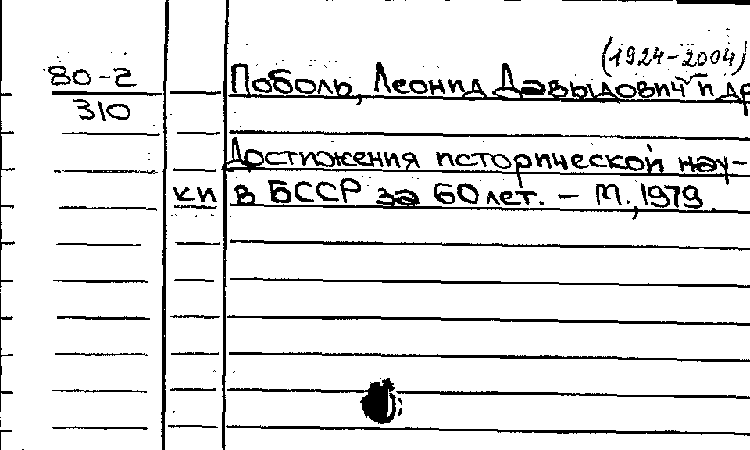 (1924-2004)
80-2 Поболь, Леонид Давыдович и др
310
Достижения исторической нау-
ки в БССР за 60 лет. - М., 1979.